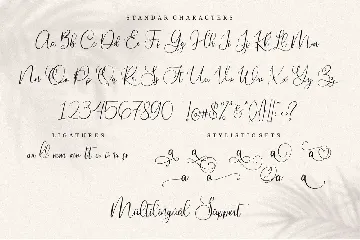 STANDAR CHARACTERS
Aa Bb Cc Dd Ee Ff Gg Hh Ii Jj Kk Ll Mm
Nn Oo Pp Qq Rr Ss Tt Uu Vv Ww Xx Yy Zz
1234567890
LIGATURES
STYLISTIC SETS
a a a a a
a a a a
Multilingual Support